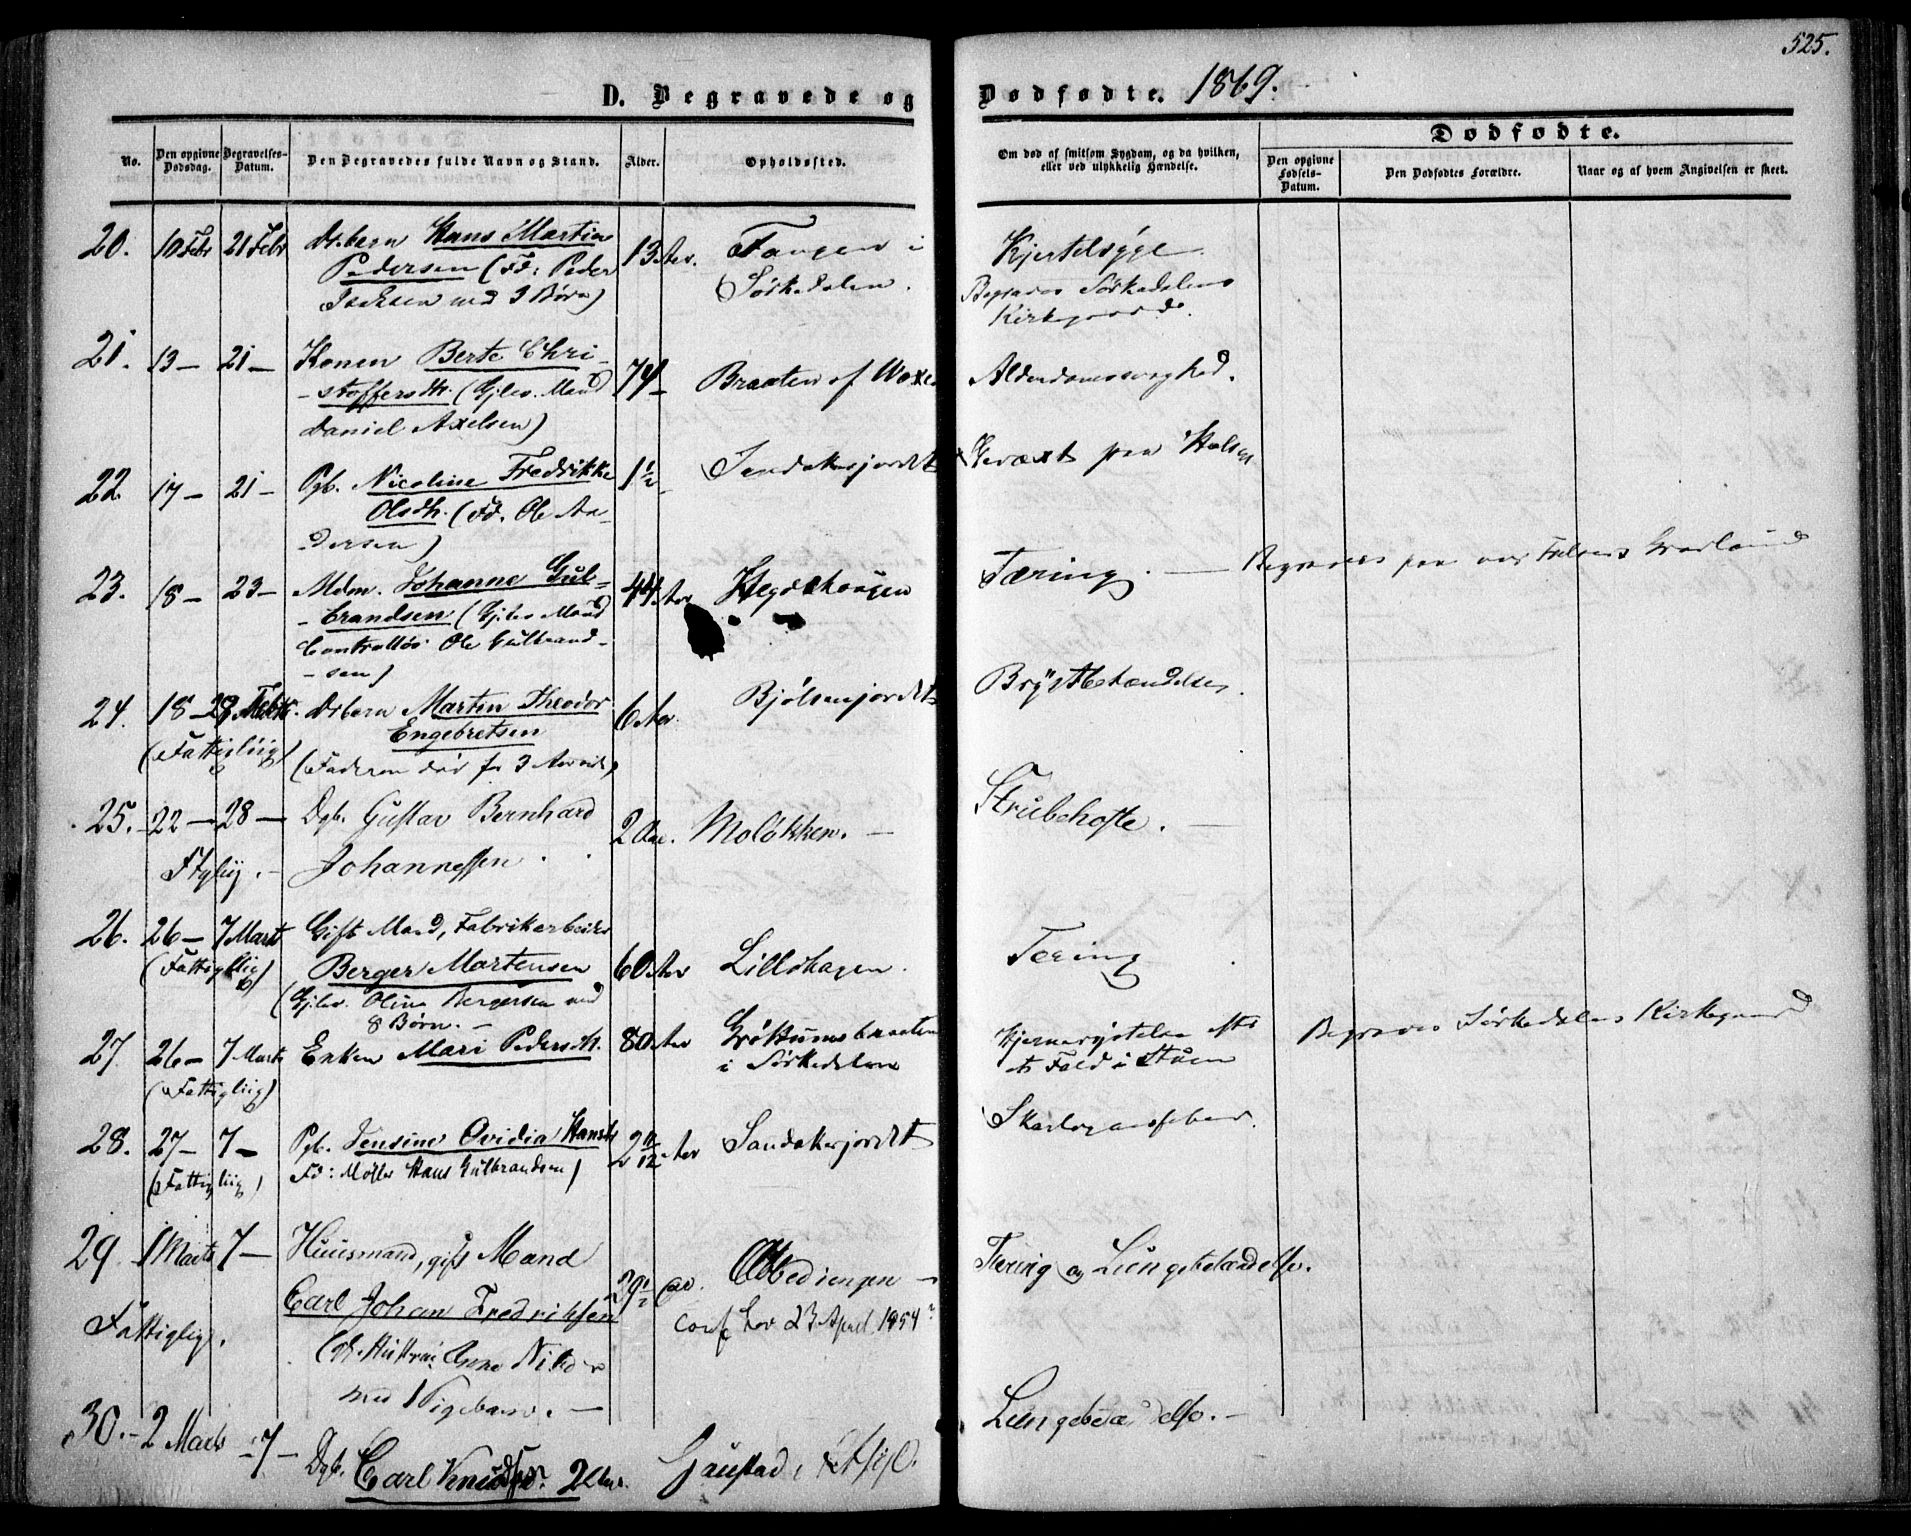 525.
D. Begravede og Dødfødte. 1869.
No.
Den opgivne Dødsdag.
Begravelses-Datum.
Den Begravedes fulde Navn og Stand.
Alder.
Opholdssted.
Om død af smitsom Sygdom, og da hvilken,
eller ved ulykkelig Hændelse.
Dødfødte.
Den opgivne Fødsels-Datum.
Den Dødfødtes Forældre.
Naar og af hvem Angivelsen er skeet.
20. 10 Febr 21 Febr Drbarn Hans Martin 13 Aar. Tangen i Kjertelsyge.
Pedersen (Fd: Peder Sørkedalen. Begraves Sørkedalens
Isaksen med 3 Børn) Kirkegaard.
21. 13 — 21 — Konen Berte Chri- 74 — Braaten af Woxen Alderdomssvaghed.
- stoffersdtr. (Gjlev. Mand
Daniel Axelsen)
22. 17 — 21 — Pgb. Nicoline Fredrikke 1½ Sandakerjordet Gevæxt paa Halsen
Olsdtr. (Fd. Ole An-
dersen)
23. 18 — 23 — Mdm. Johanne Gul- 44 Aar Hegdehaugen Tæring. — Begraves paa vor Frelsers Gravlund
- brandsen (Gjlev. Mand
Controllør Ole Gulbrand-
- sen)
24. 18 — 28 Febr. Drbarn Martin Theodor 6 Aar. Bjølsenjordet Brystbetændelse.
(Fattiglig) Engebretsen
(Faderen død for 3 Aar siden)
25. 22 — 28 — Dgb. Gustav Bernhard 2 Aar. Moløkken. — Strubehoste. —
Ftglig. — Johannessen.
26. 26 — 7 Marts Gift Mand, Fabrikarbeider 60 Aar Lillohagen. Tæring.
(Fattiglig) Berger Martensen
(Gjlev. Oline Bergersen med
8 Børn. —
27. 26 — 7 Marts Enken Mari Pedersdtr. 80 Aar Grøttumsbraaten Hjernerystelse efter Begraves Sørkedalens Kirkegaard
(Fattiglig) i Sørkedalen et Fald i Stuen
28. 27 — 7 — Pgb. Jensine Ovidia Hansdtr 2 10/12 Aar Sandakerjordet Skarlagensfeber.
(Fattiglig) Fd: Møller Hans Gulbrandsen)
29. 1 Marts 7 — Huusmand, gift Mand 29½ Aar. Abbediengen — Tæring og Lungebetændelse.
Fattiglig. Carl Johan Fredriksen conf Lov 23 April 1854?
(E. Hustru: Anne
med 1 Pigebarn. —
30. — 2 Marts — 7 — Dgb. Carl Knudsen. 2 Aar. Gaustad, Lungebetændelse. —